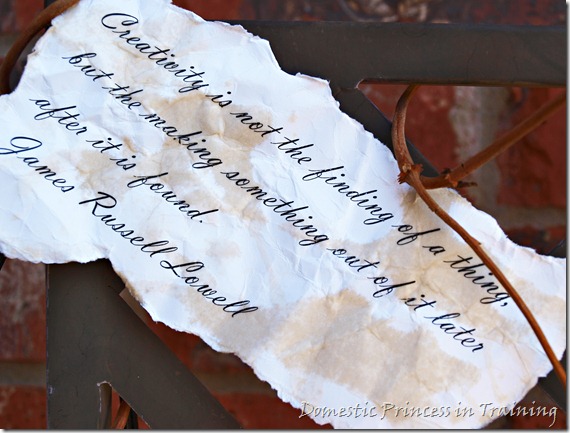 Creativity is not the finding of a thing,
but the making something out of it later
after it is found.
James Russell Lowell
Domestic Princess in Training